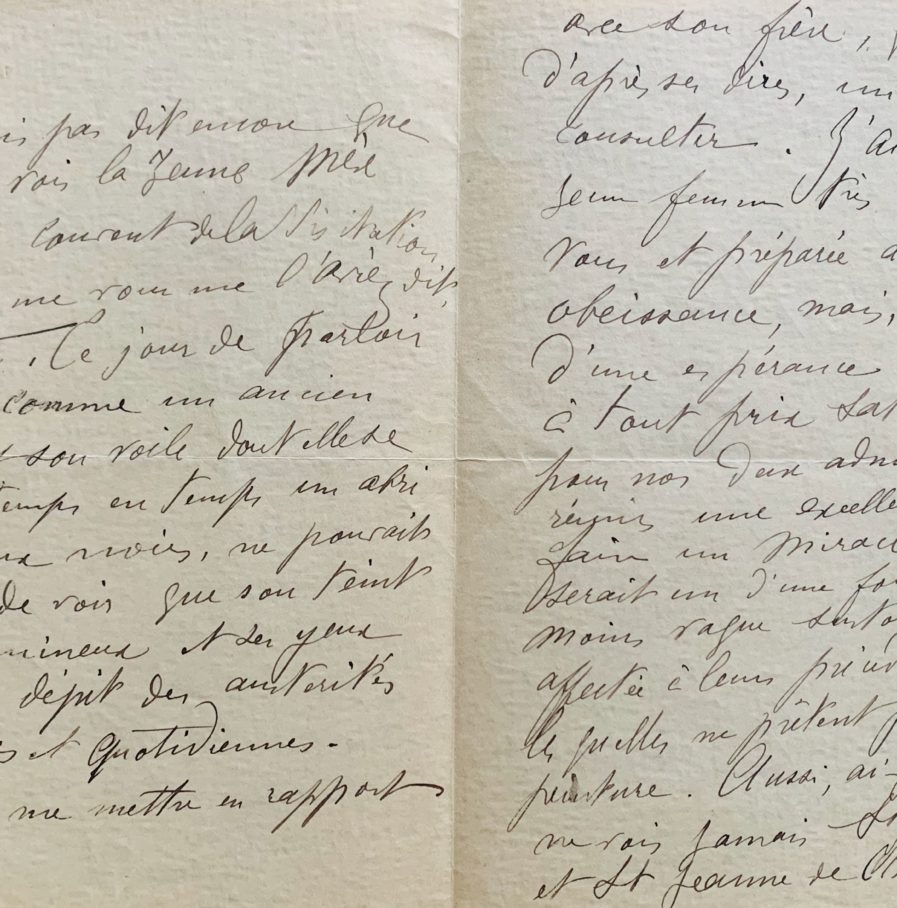 is pas dit encore que
vois la Jeune Mère
couvent de la Visitation
me vous me l'aviez dit,
. Le jour de parloir
comme un ancien
son voile dont elle se
temps en temps un abri
ux noirs, ne pouvait
de voir que son teint
mineux et ses yeux
dépit des austérités
s et quotidiennes.
me mettre en rapport
avec son frère,
d'après ses dires, un
consulter. J'ai
jeune femme très
vous et préparée a
obeissance, mais,
d'une espérance
à tout prix sat
pour nos deux adm
réunir une excelle
Sain un Mirac
serait un d'une fo
moins vague surto
affectée à leurs
lesquelles ne prêtent p
peinture. Aussi, ai-
ne vois jamais St
et St Jeanne de C